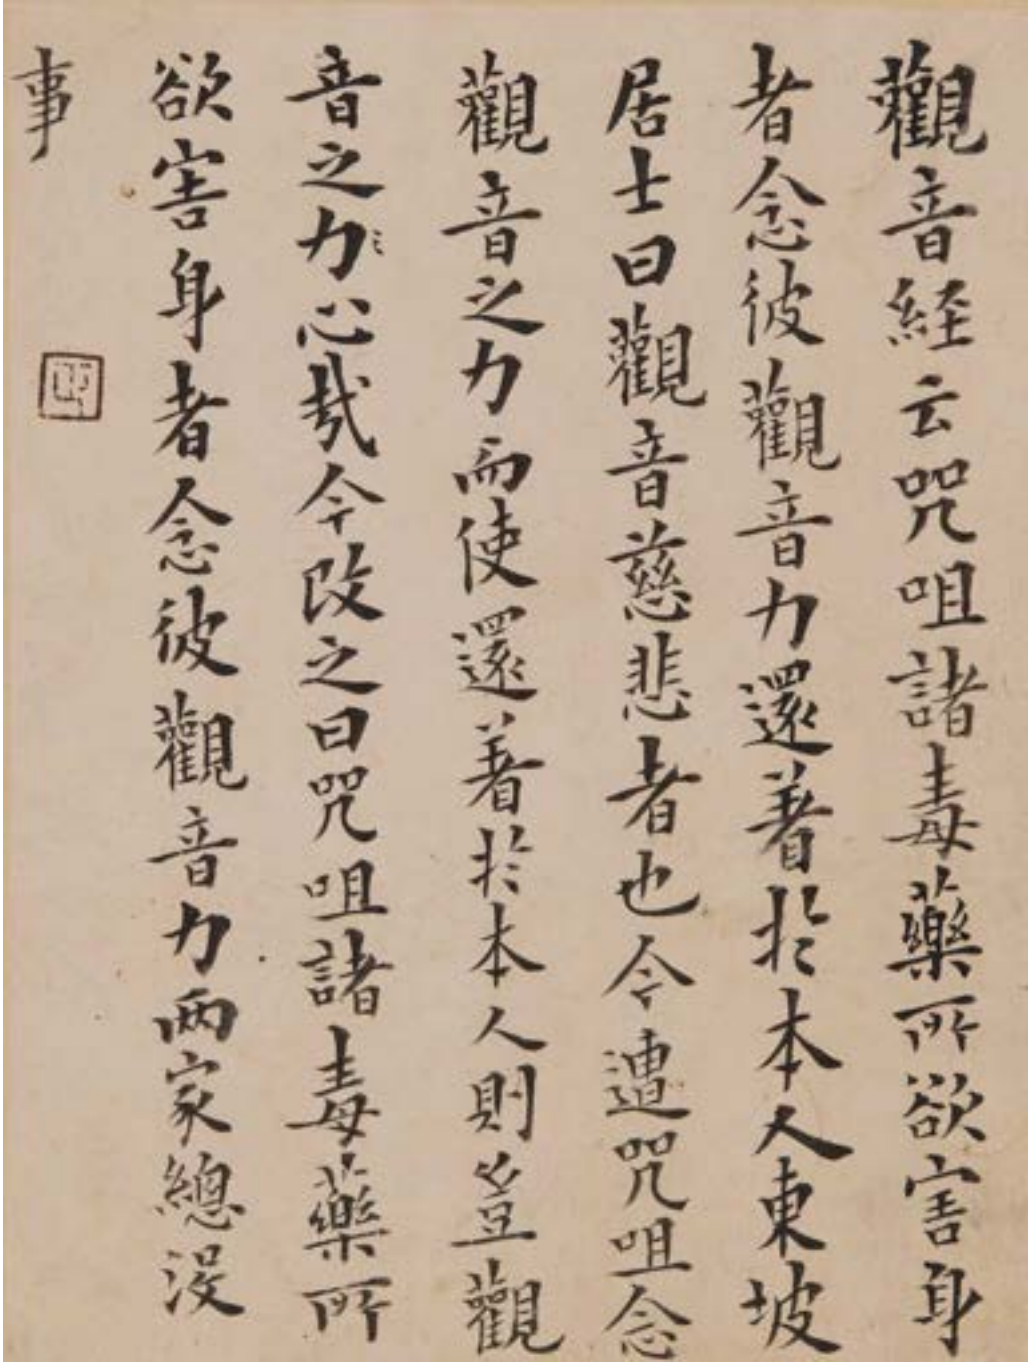 觀音経云咒咀諸毒藥所欲害身
者念彼觀音力還著扵本人東坡
居士曰觀音慈悲者也今遭咒咀念
觀音之力而使還著扵本人則豈觀
音之力心㢤今改之曰咒咀諸毒藥所
欲害身者念彼觀音力兩家總沒
事